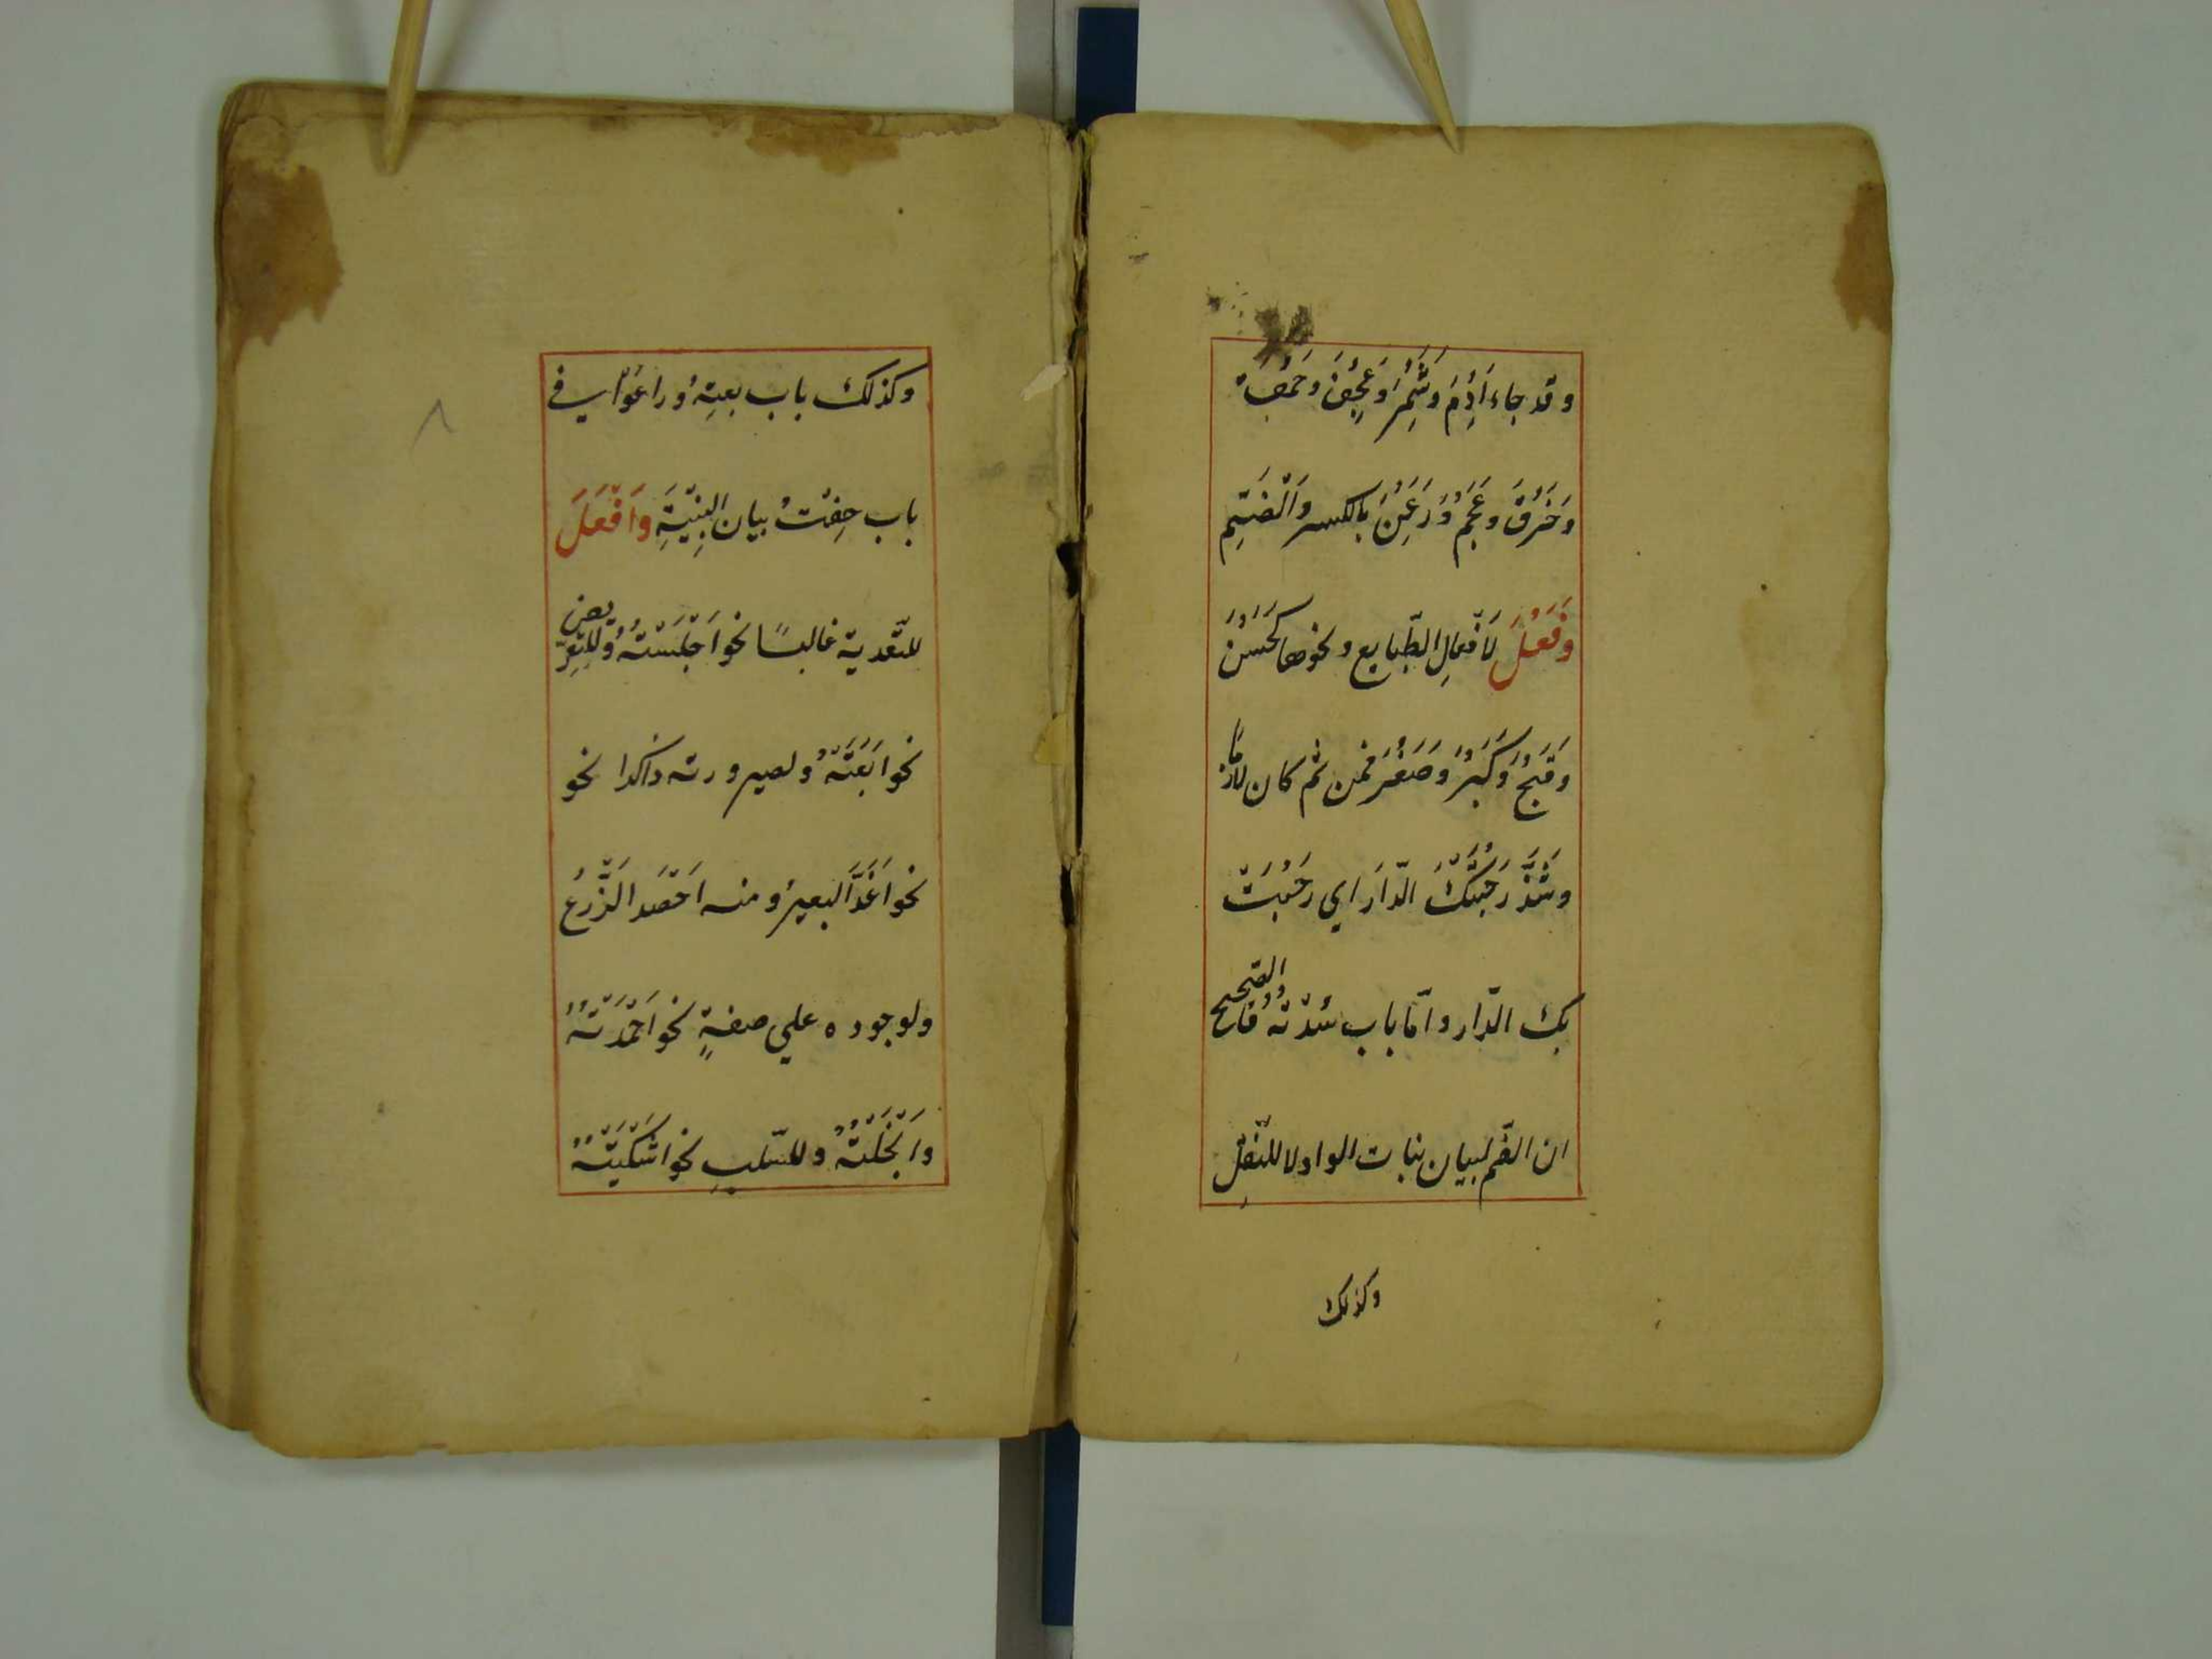 وقد جاء اَدِمَ وَسَُمِرَ وَعَجُِفَ وَحَمُقَ
وَخَرُقَ وعَجُمَ وَرَعَُِنَ بالكسر وَالْضَمِّ
وَفَعُلَ لَافْعالِ الطّبايع ونحوها كَحَسُنَ
وَقَبُحَ وَكَبُرَ وَصَغُرَ فمن ثم كان لَازمًا
وشَذَّ رَحُبَتْكَ الدّارَ اي رَحُبَتْ
بك الدّار وامّا باب سُدْتُهُ فالصّحيح
ان الضّم لبيان بنات الواو لا للنّقل
وكذلك
وكذلك باب بعته وراعَوْا في
باب خِفْتُ بيان البِنْيَةِ وَاَفْعَلَ
للتّعدية غالبًا نحو اَجْلَسْتُهُ وللتّعريض
نحو اَبَعْتُهُ ولصيرورته ذاكذا نحو
نحو اَغَدَّ البعيرُ ومنه اَحْصَدَ الزَّرعُ
ولوجوده علي صفةٍ نحو اَحْمَدْتُهُ
واَبْخَلْتُهُ وللسّلبِ نحو اَشْكَيْتُهُ
٨